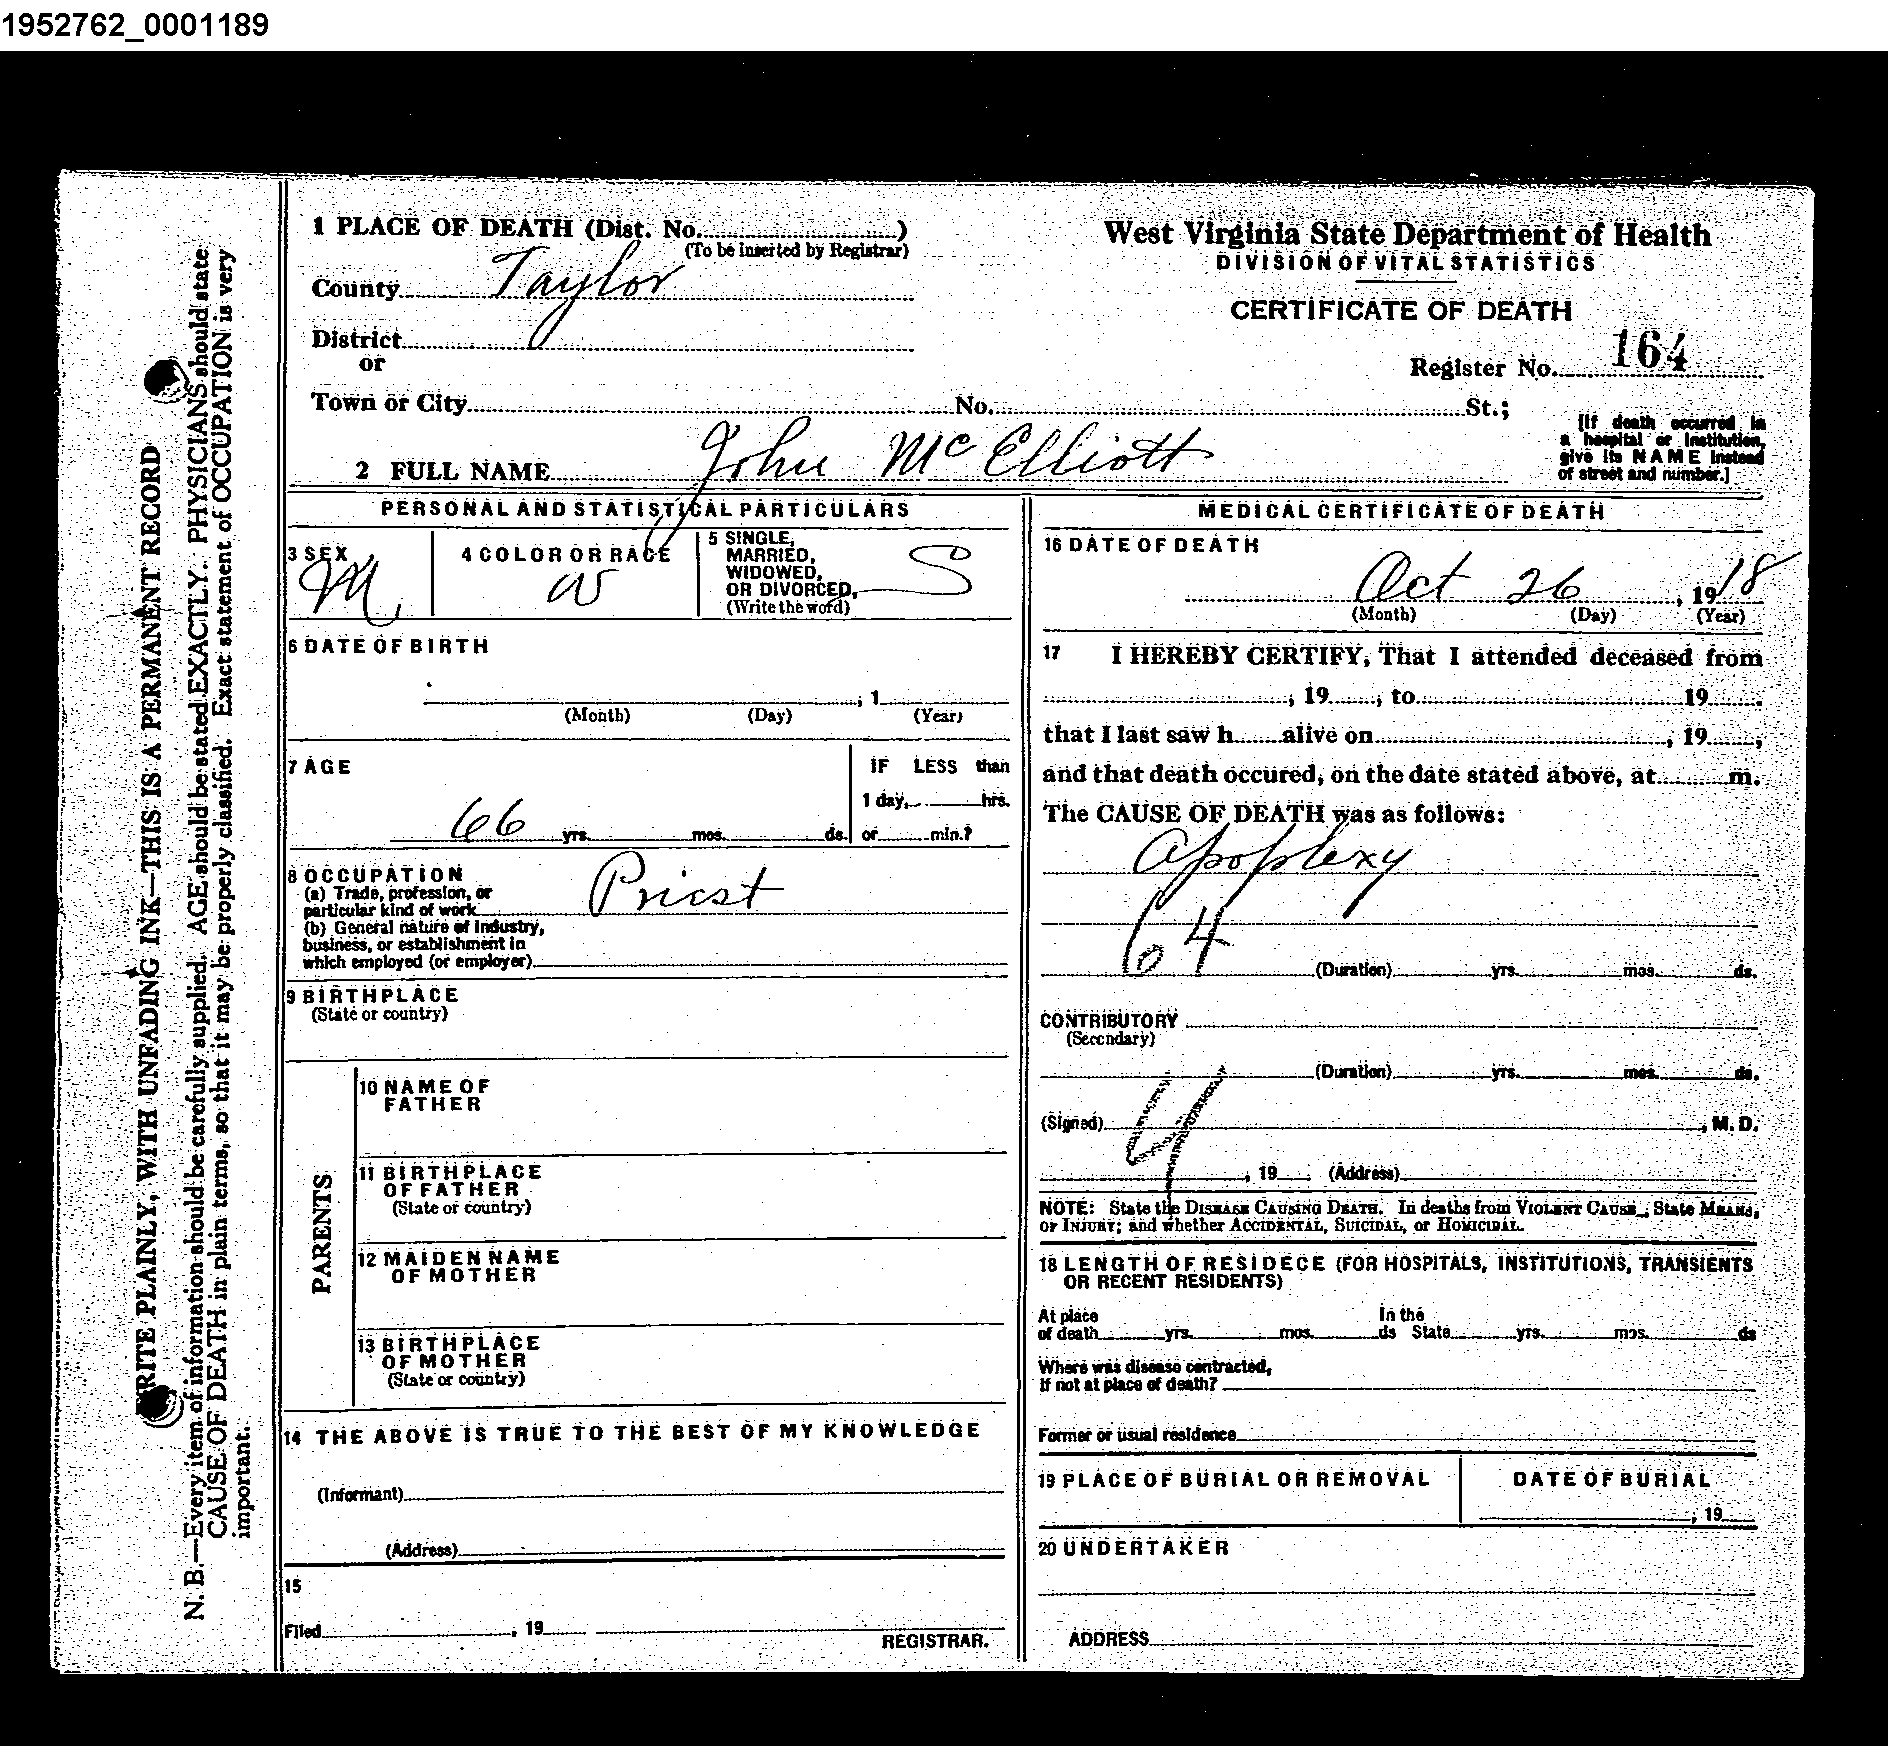 1952762_0001189
WRITE PLAINLY, WITH UNFADING INK—THIS IS A PERMANENT RECORD
N. B.—Every item of information should be carefully supplied. AGE should be stated EXACTLY. PHYSICIANS should state
CAUSE OF DEATH in plain terms, so that it may be properly classified. Exact statement of OCCUPATION is very
important.
1 PLACE OF DEATH (Dist. No. )
(To be inserted by Registrar)
County Taylor
District
or
Town or City No. St.;
West Virginia State Department of Health
DIVISION OF VITAL STATISTICS
CERTIFICATE OF DEATH
Register No. 164
[If death occurred in
a hospital or institution,
give its NAME instead
of street and number.]
2 FULL NAME John McElliott
PERSONAL AND STATISTICAL PARTICULARS
3 SEX
M
4 COLOR OR RACE
W
5 SINGLE,
MARRIED,
WIDOWED,
OR DIVORCED,
(Write the word)
S
6 DATE OF BIRTH
, 1
(Month) (Day) (Year)
7 AGE
66 yrs. mos. ds.
IF LESS than
1 day, hrs.
or min.?
8 OCCUPATION
(a) Trade, profession, or
particular kind of work Priest
(b) General nature of industry,
business, or establishment in
which employed (or employer)
9 BIRTHPLACE
(State or country)
PARENTS
10 NAME OF
FATHER
11 BIRTHPLACE
OF FATHER
(State or country)
12 MAIDEN NAME
OF MOTHER
13 BIRTHPLACE
OF MOTHER
(State or country)
14 THE ABOVE IS TRUE TO THE BEST OF MY KNOWLEDGE
(Informant)
(Address)
15
Filed , 19
REGISTRAR.
MEDICAL CERTIFICATE OF DEATH
16 DATE OF DEATH
Oct 26, 1918
(Month) (Day) (Year)
17 I HEREBY CERTIFY, That I attended deceased from
, 19 , to 19 .
that I last saw h alive on , 19 ,
and that death occured, on the date stated above, at m.
The CAUSE OF DEATH was as follows:
Apoplexy
64
(Duration) yrs. mos. ds.
CONTRIBUTORY
(Secondary)
(Duration) yrs. mos. ds.
4
(Signed) , M. D.
, 19 (Address)
NOTE: State the DISEASE CAUSING DEATH. In deaths from VIOLENT CAUSE , State MEANS,
OF INJURY; and whether ACCIDENTAL, SUICIDAL, or HOMICIDAL.
18 LENGTH OF RESIDECE (FOR HOSPITALS, INSTITUTIONS, TRANSIENTS
OR RECENT RESIDENTS)
At place In the
of death yrs. mos. ds State yrs. mos. ds
Where was disease contracted,
If not at place of death?
Former or usual residence
19 PLACE OF BURIAL OR REMOVAL
DATE OF BURIAL
, 19
20 UNDERTAKER
ADDRESS